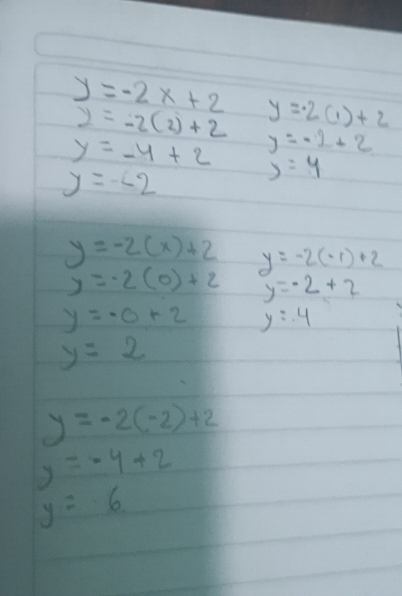 y = -2x + 2
y = -2(2) + 2
y = -4 + 2
y = -2
y = -2(1) + 2
y = -2 + 2
y = 4
y = -2(x) + 2
y = -2(0) + 2
y = -0 + 2
y = 2
y = -2(-1) + 2
y = -2 + 2
y = 4
y = -2(-2) + 2
y = -4 + 2
y = 6